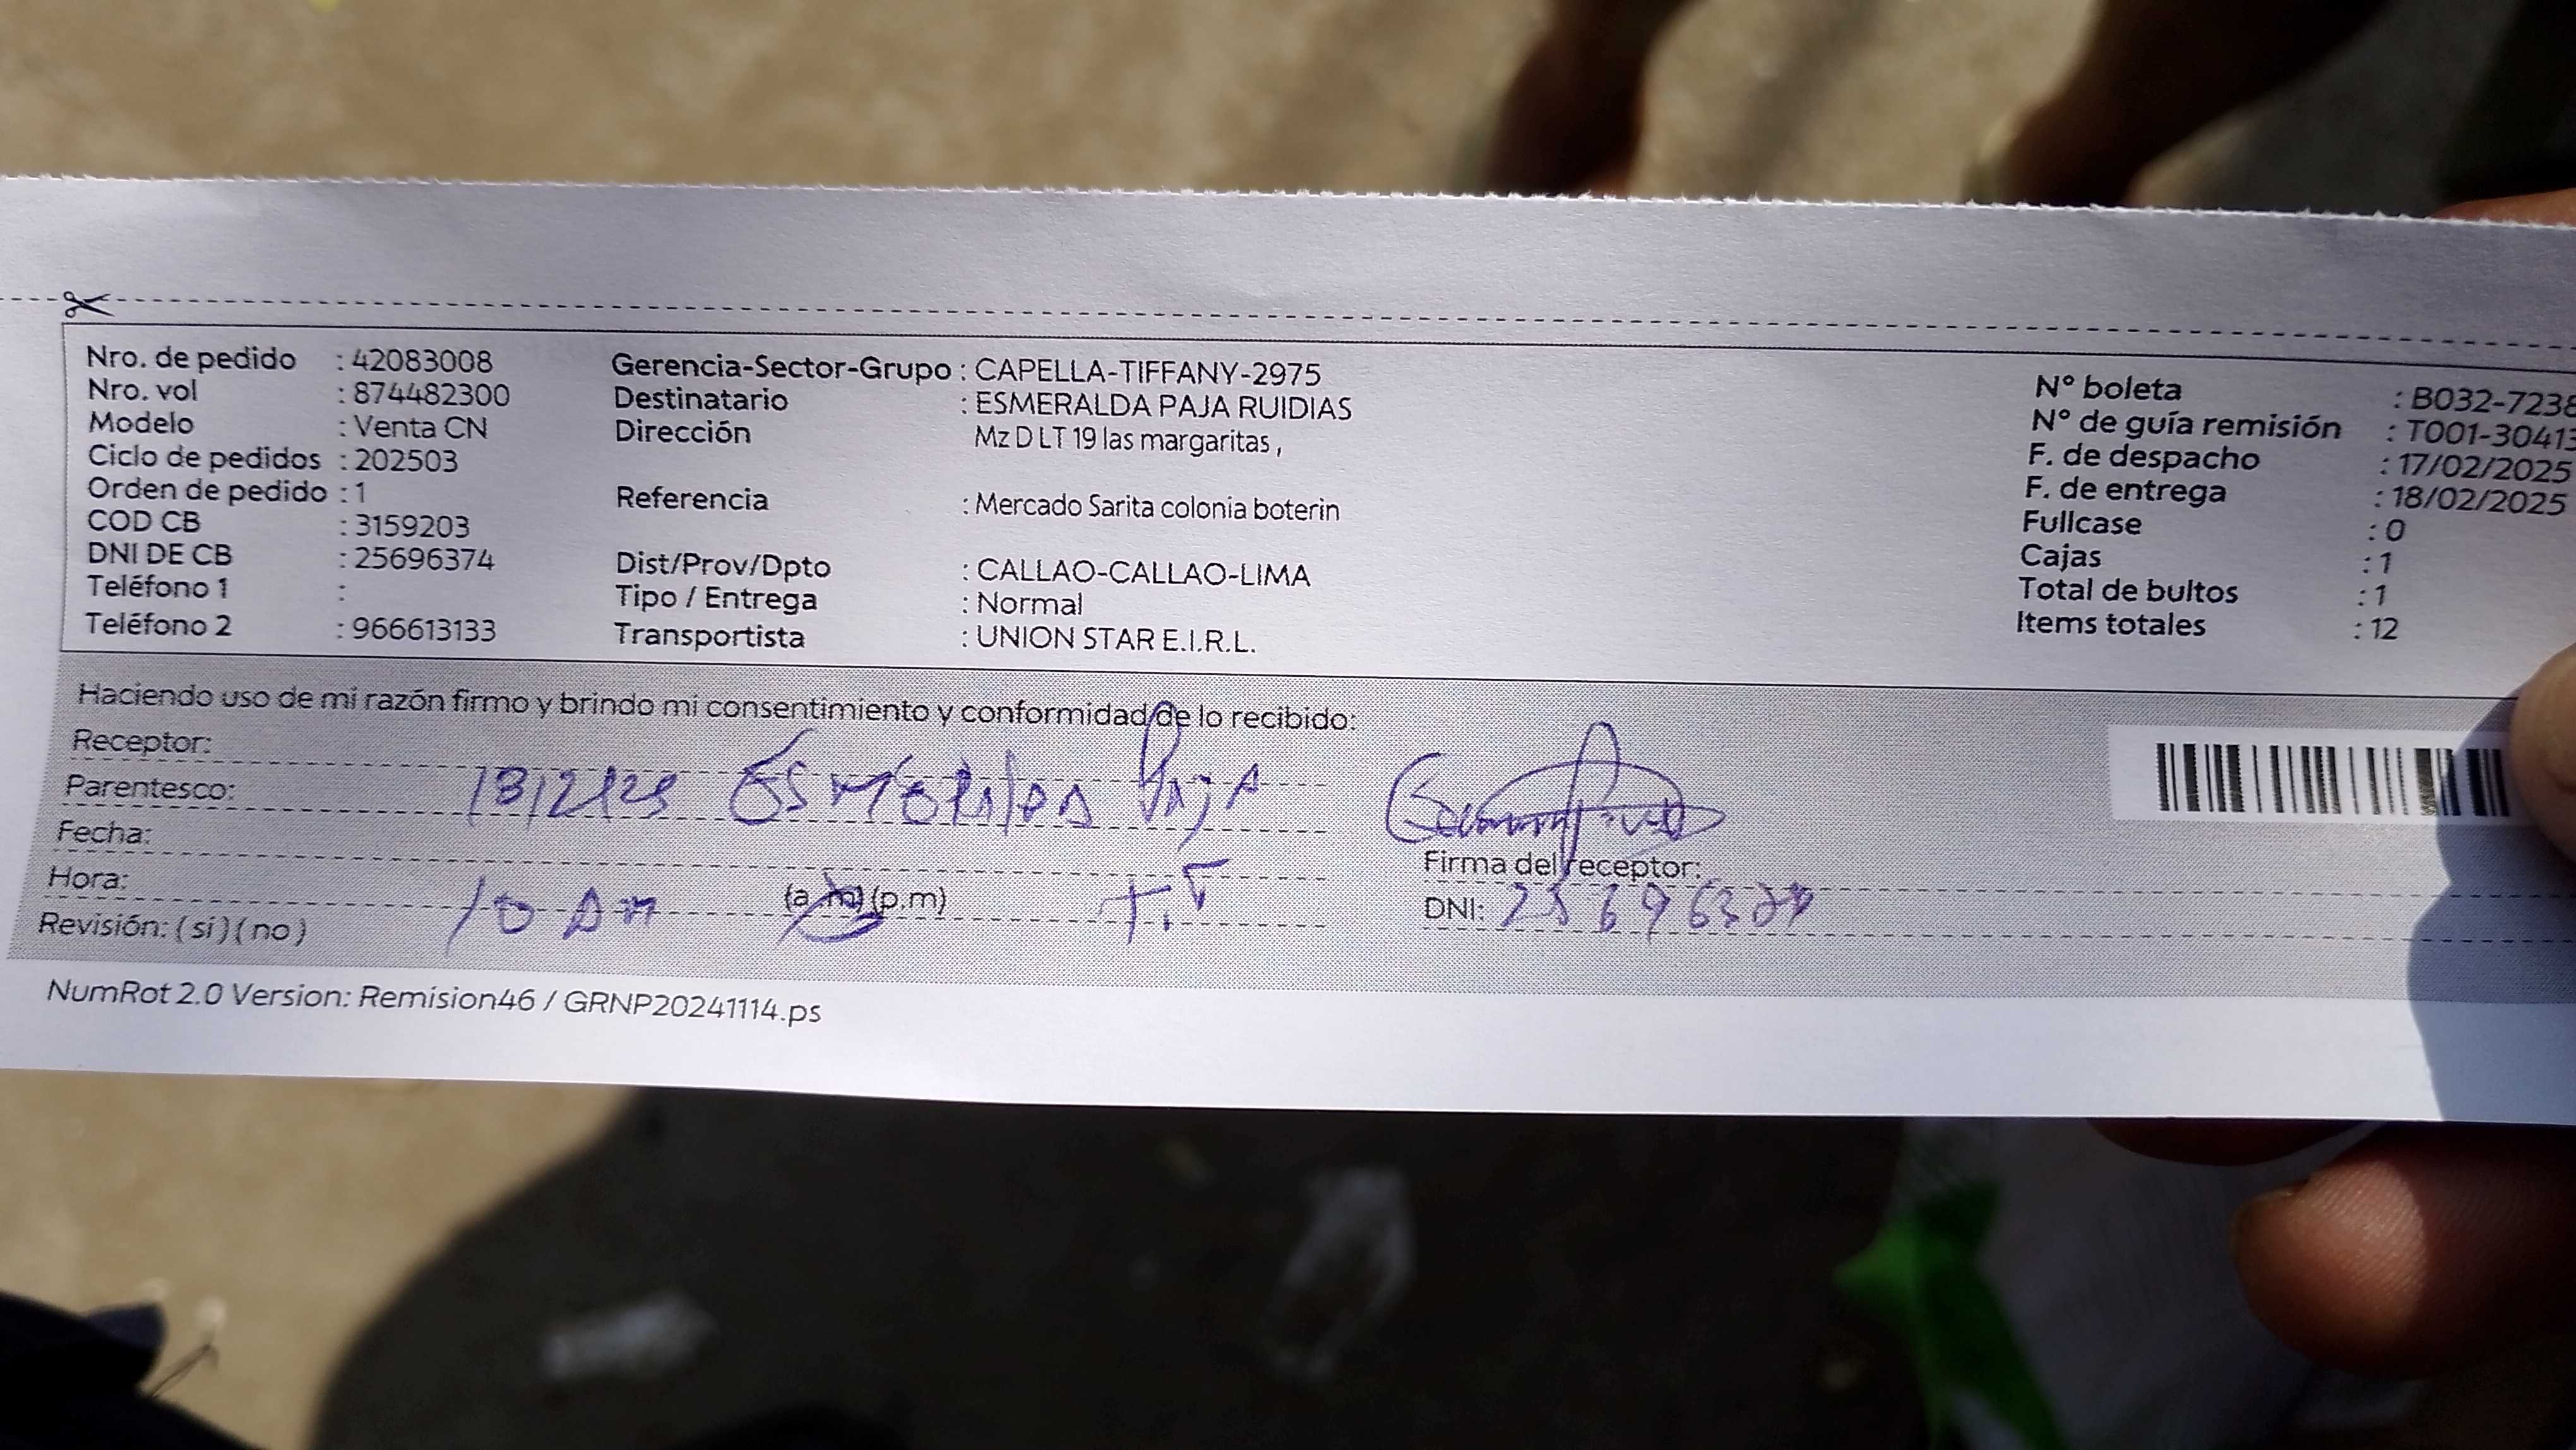 Nro. de pedido : 42083008 Gerencia-Sector-Grupo : CAPELLA-TIFFANY-2975 N° boleta : B032-7238
Nro. vol : 874482300 Destinatario : ESMERALDA PAJA RUIDIAS N° de guía remisión : T001-30413
Modelo : Venta CN Dirección Mz D LT 19 las margaritas , F. de despacho : 17/02/2025
Ciclo de pedidos : 202503 F. de entrega : 18/02/2025
Orden de pedido : 1 Referencia : Mercado Sarita colonia boterin Fullcase : 0
COD CB : 3159203 Cajas : 1
DNI DE CB : 25696374 Dist/Prov/Dpto : CALLAO-CALLAO-LIMA Total de bultos : 1
Teléfono 1 : Tipo / Entrega : Normal Items totales : 12
Teléfono 2 : 966613133 Transportista : UNION STAR E.I.R.L.
Haciendo uso de mi razón firmo y brindo mi consentimiento y conformidad de lo recibido:
Receptor:
Parentesco: Esmeralda Paja
Fecha:
Firma del receptor:
Hora: 10 Am (a.m) (p.m) T.T DNI:
Revisión: ( si ) ( no )
NumRot 2.0 Version: Remision46 / GRNP20241114.ps